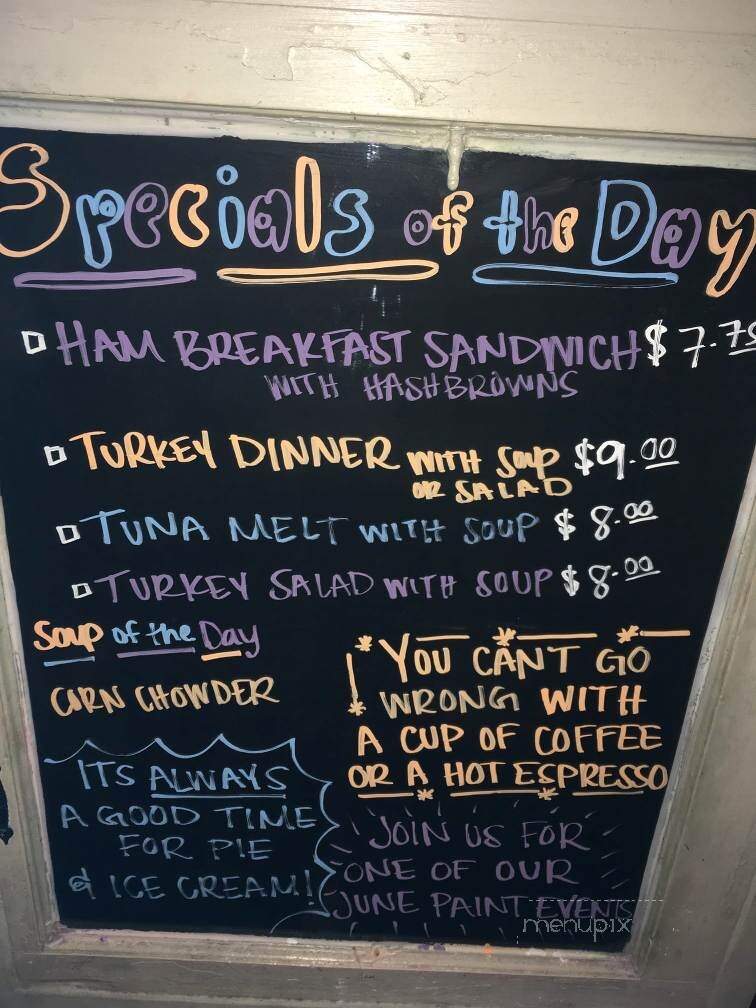 Specials of the Day
HAM BREAKFAST SANDWICH $7.75
WITH HASHBROWNS
TURKEY DINNER WITH SOUP $9.00
OR SALAD
TUNA MELT WITH SOUP $8.00
TURKEY SALAD WITH SOUP $8.00
Soup of the Day
CORN CHOWDER
* YOU CAN'T GO
* WRONG WITH
A CUP OF COFFEE
OR A HOT ESPRESSO
ITS ALWAYS
A GOOD TIME
FOR PIE
& ICE CREAM!
JOIN US FOR
ONE OF OUR
JUNE PAINT EVENTS
menupix